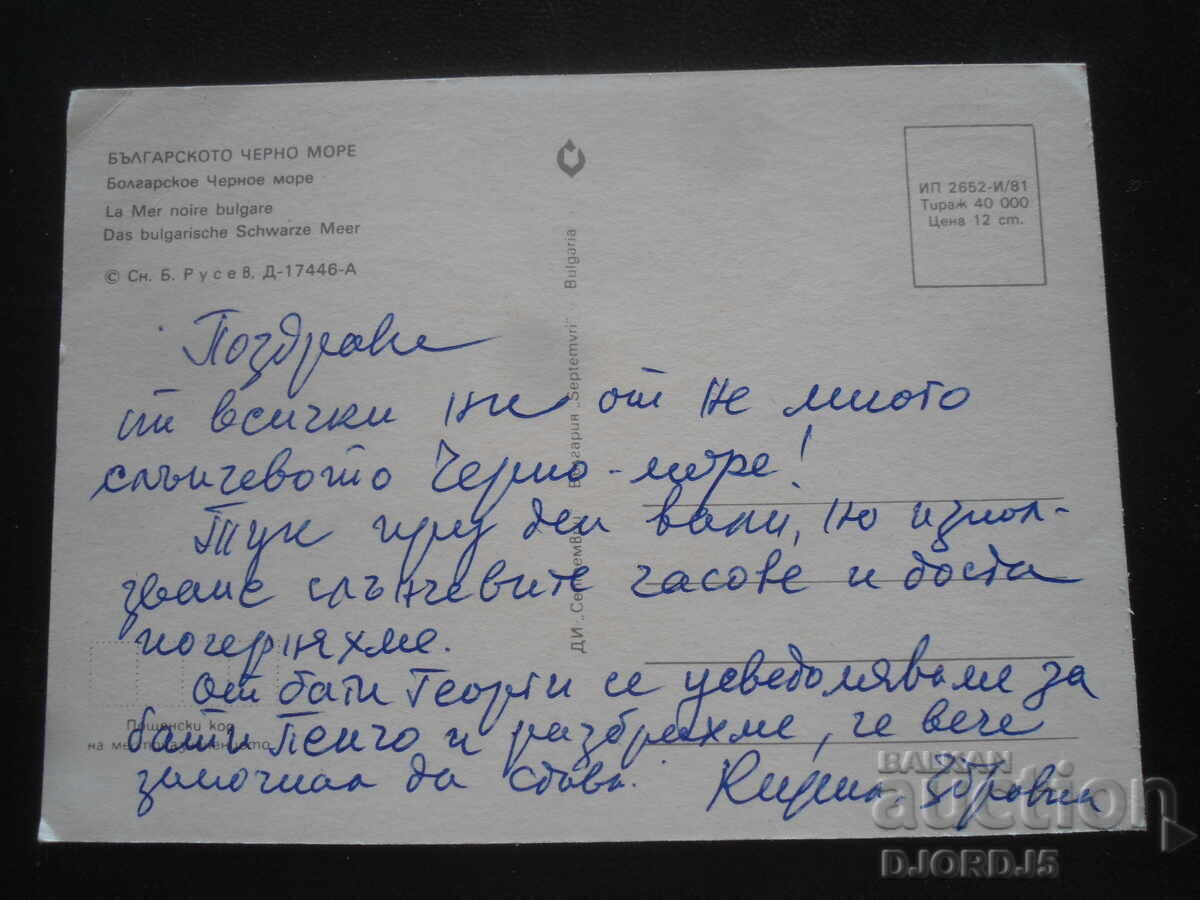 БЪЛГАРСКОТО ЧЕРНО МОРЕ
Болгарское Черное море
La Mer noire bulgare
Das bulgarische Schwarze Meer
© Сн. Б. Русев. Д-17446-А
ИП 2652-И/81
Тираж 40 000
Цена 12 ст.
ДИ „Септември" България „Septemvri" Bulgaria
Поздрави
от всички ни от не много
слънчевото Черно-море!
Тук през ден вали, но изпол-
зваме слънчевите часове и доста
почерняхме.
От бати Георги се уведомявыме за
бати Пенчо и разбрахме, че вече
започнал да става.
Пощенски код
на местоназначението
BALKAN
auction
DJORDJ5